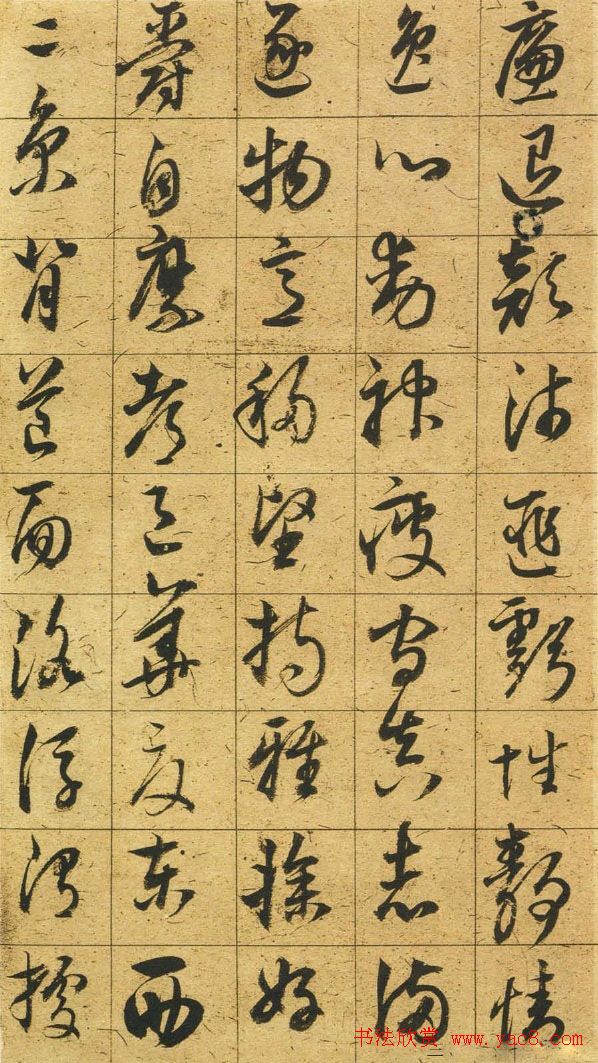 廉退顛沛匪虧性靜情
逸心動神疲守真志滿
逐物意移堅持雅操好
爵自縻都邑華夏東西
二京背芒面洛浮渭據
书法欣赏 www.yac8.com